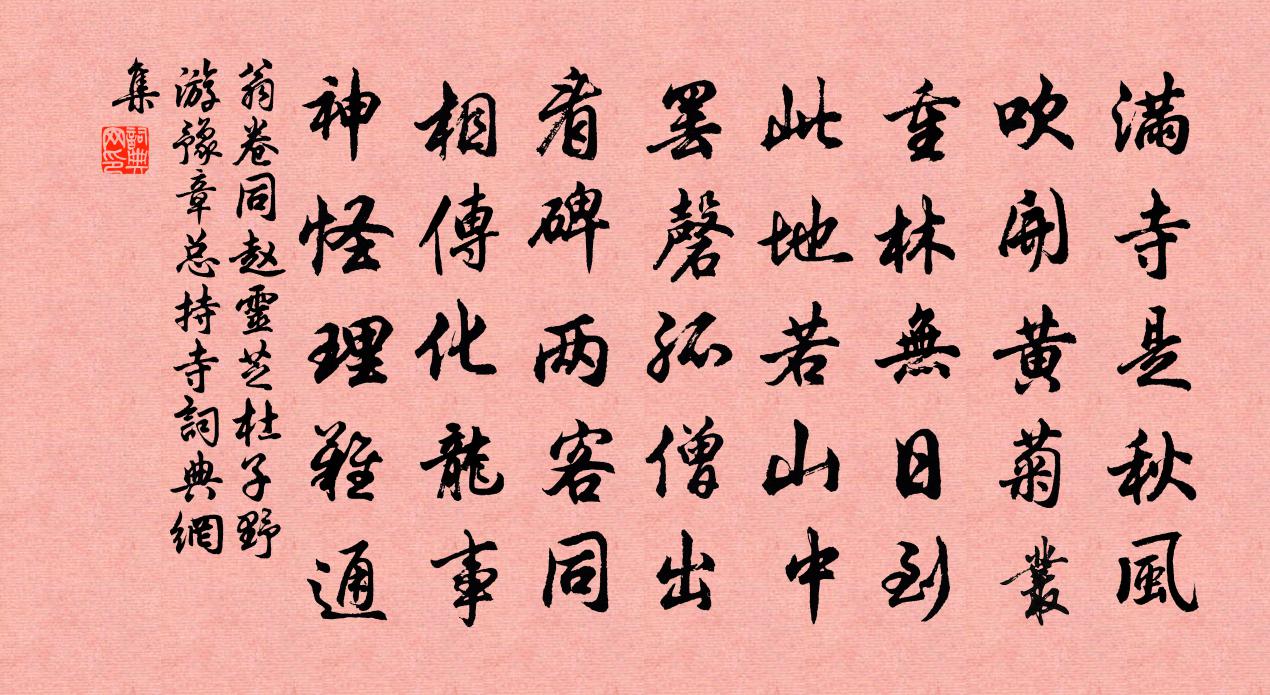 满寺是秋風
吹開黄菊叢
重林無日到
此地若山中
罢磬孤僧出
看碑两客同
相傳化龍事
神怪理難通
翁卷同赵靈芝杜子野
游豫章总持寺詞典網
集
詞典网印